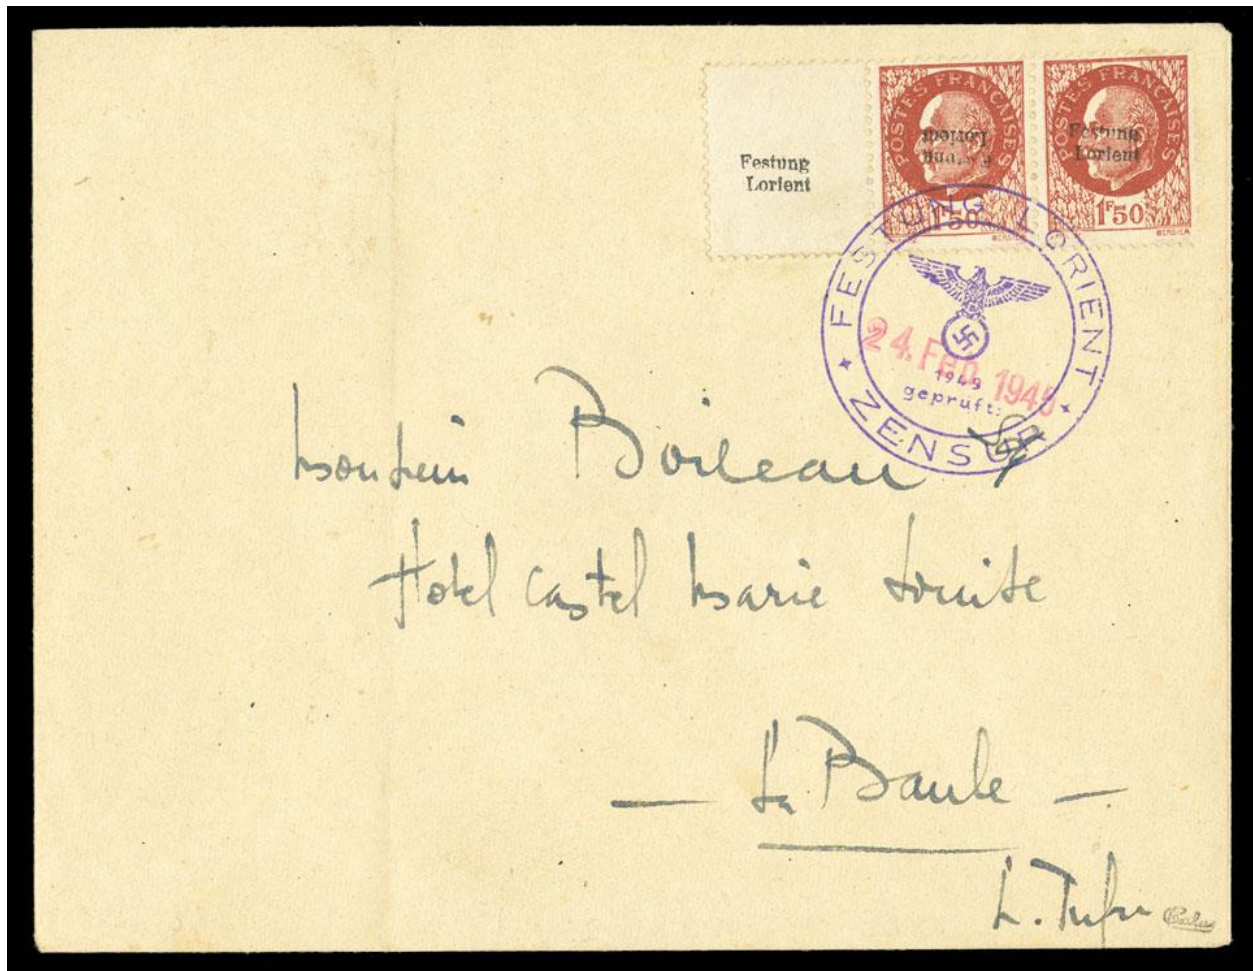 Festung
Lorient
POSTES FRANÇAISES
Festung
Lorient
1F50
POSTES FRANÇAISES
Festung
Lorient
1F50
BERSIER
FESTUNG LORIENT
24. Feb. 1945
1949
geprüft:
ZENSUR
Monsieur Boileau
Hotel Castel Marie Louise
— La Baule —
L. Infre